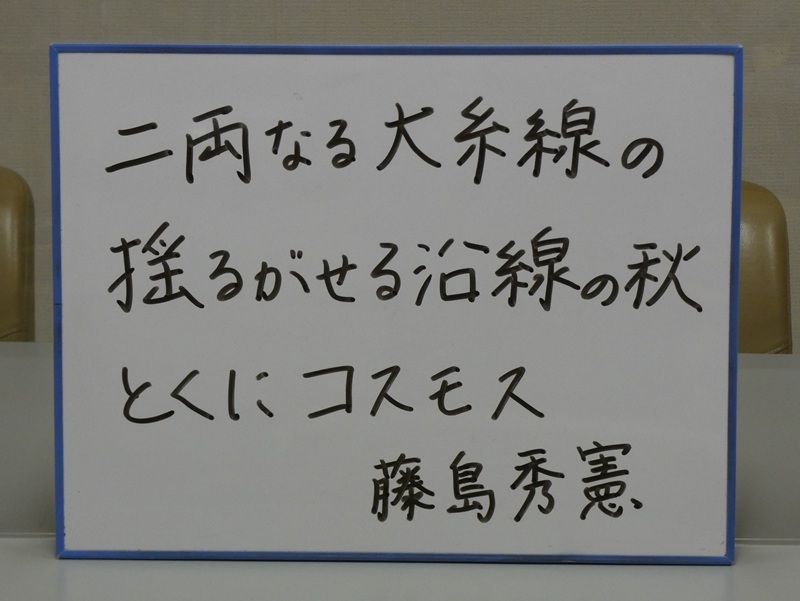 二両なる大糸線の
揺るがせる沿線の秋
とくにコスモス
藤島秀憲